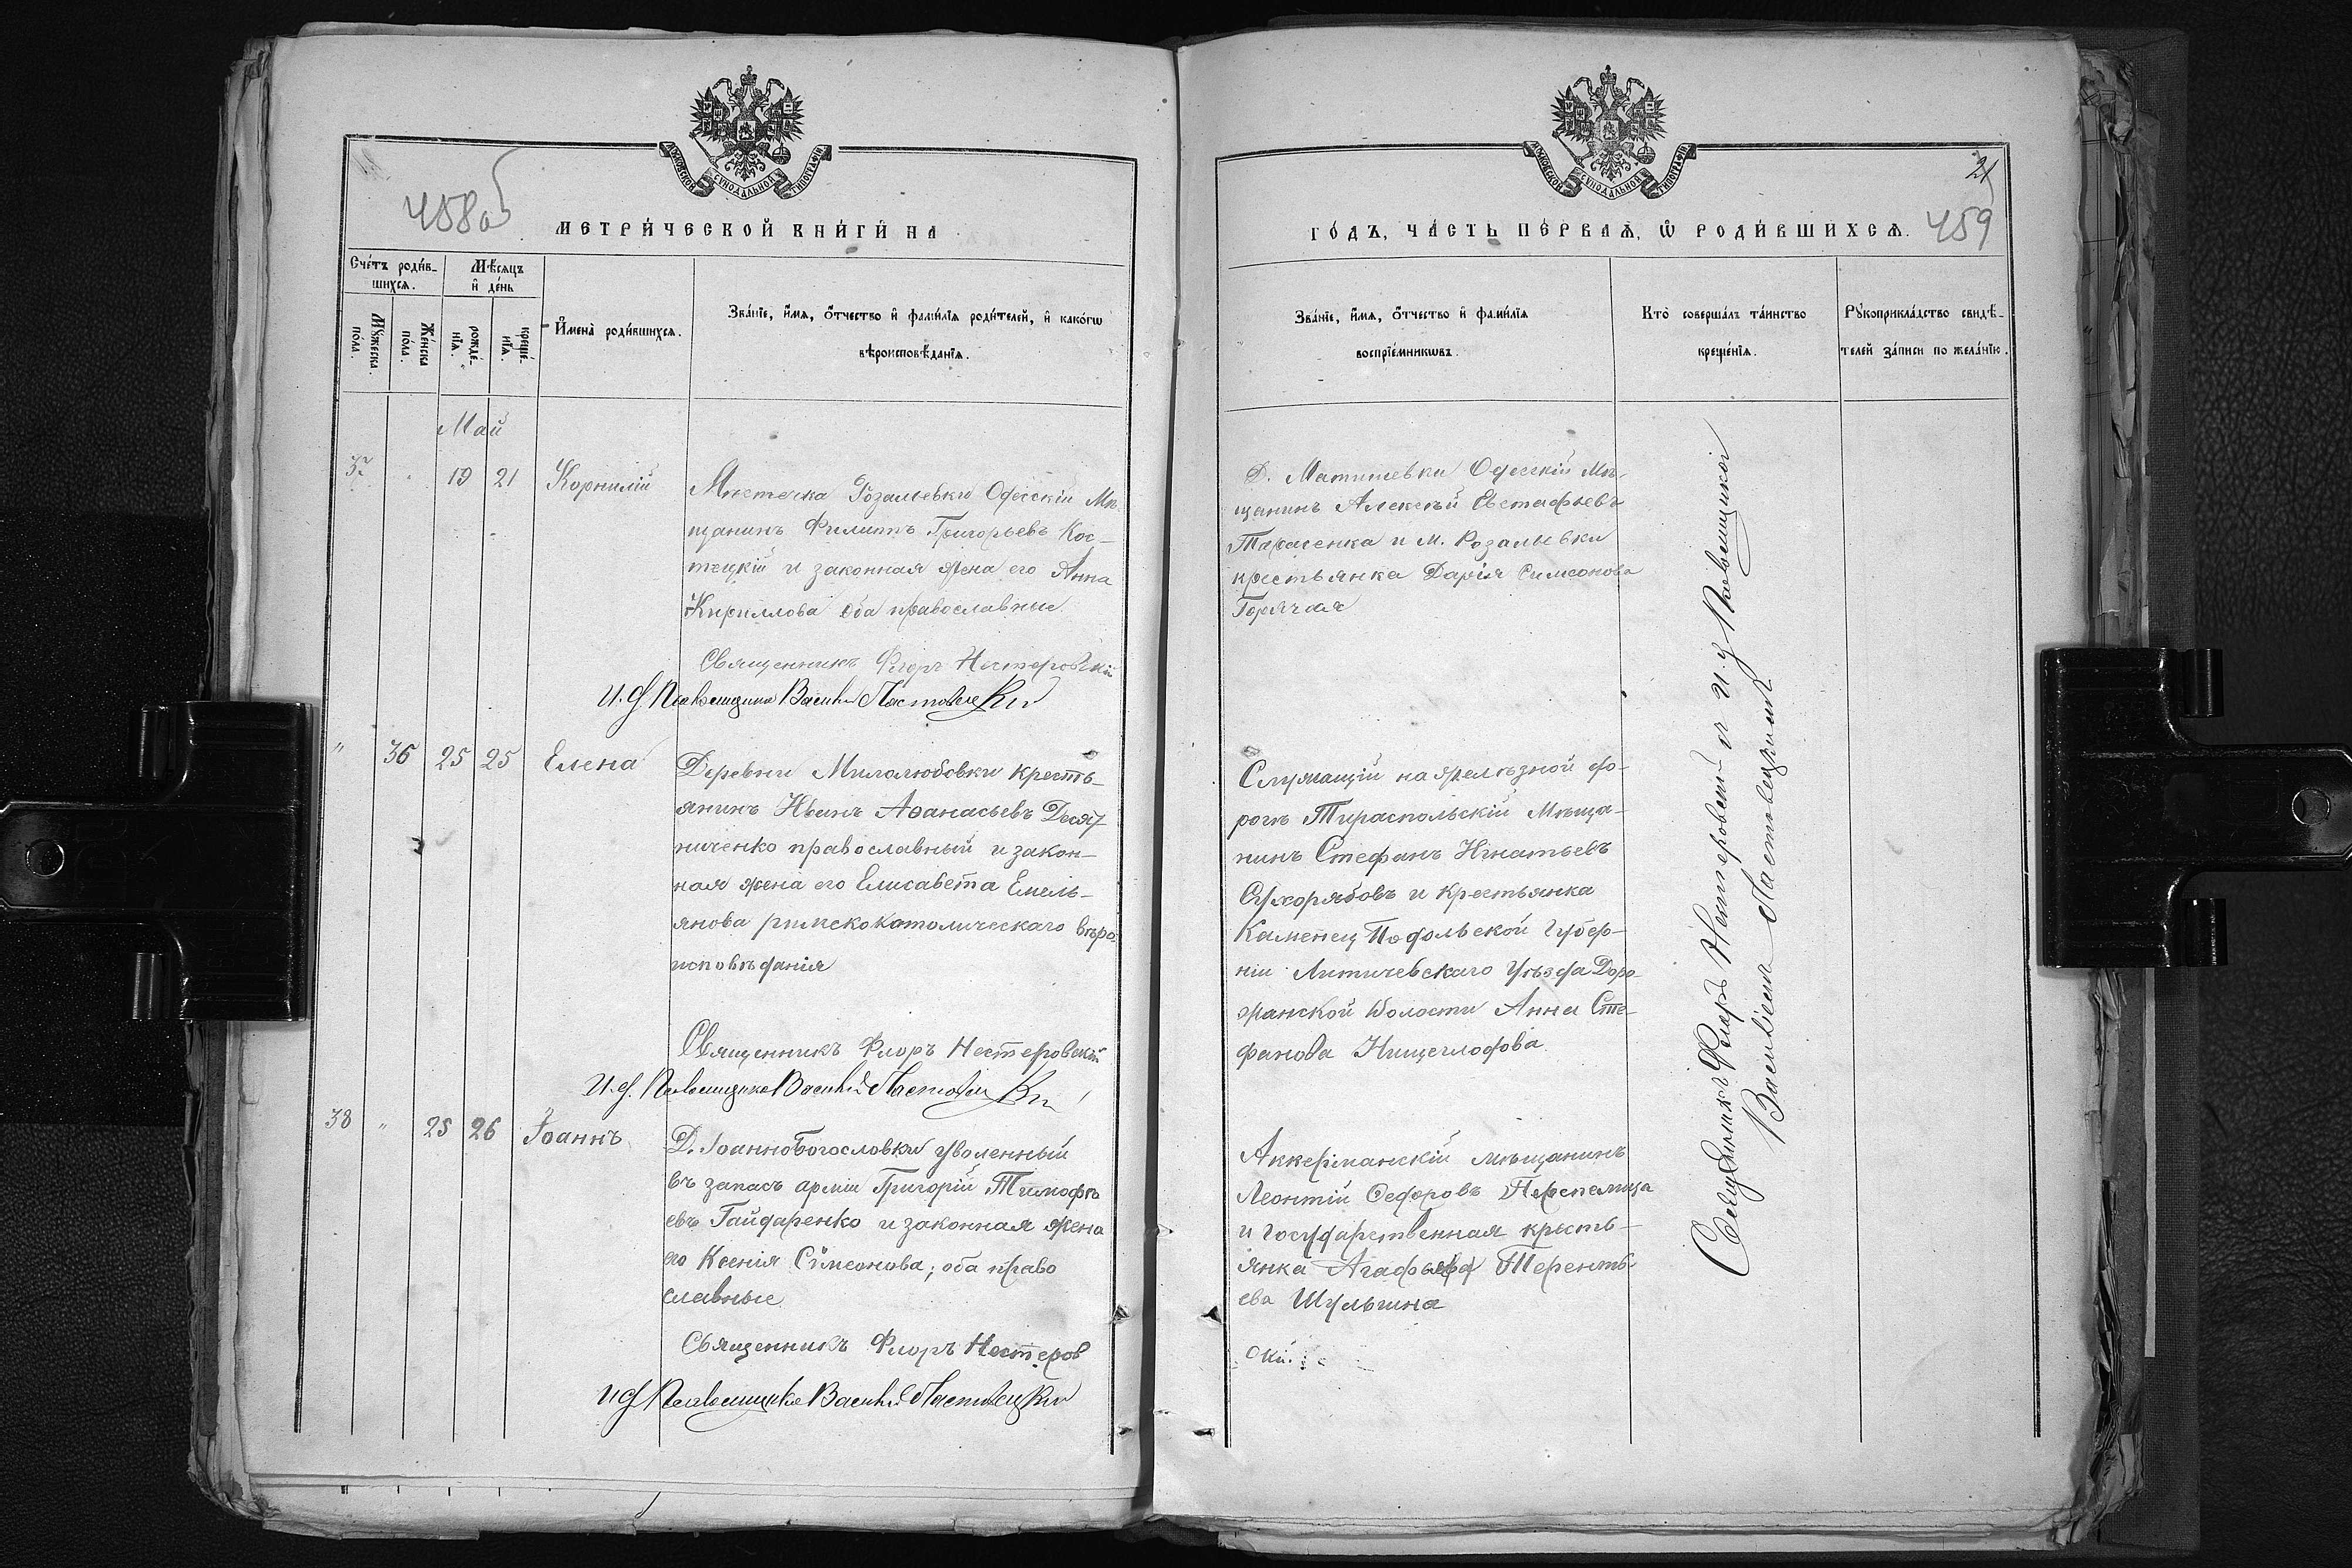 458об
МОСКОВСКОЙ СУНОДАЛЬНОЙ ТИПОГРАФІИ
МЕТРИ́ЧЕСКОЙ КНИ́ГИ НА
Сче́тъ роди́в-
шихсѧ.
Мѣ́сѧцъ
и҆ де́нь
Мꙋ́жеска по́ла.
Же́нска по́ла.
рожде́-нїѧ.
креще́-нїѧ.
И҆мена̀ роди́вшихсѧ.
Зва́нїе, и҆́мѧ, ѻ҆́тчество и҆ фами́лїѧ роди́телей, и҆ како́гѡ
вѣроисповѣ́данїѧ.
Май
37 19 21 Корнилій
Мѣстечка Розальевки Одесскій Мѣ-
щанинъ Филиппъ Григорьевъ Кос-
тецкій и законная жена его Анна
Кириллова оба православные
Священникъ Флоръ Нестеровскій
И. д. Псаломщика Василій Ластовецкій
" 36 25 25 Елена
Деревни Милолюбовки кресть-
янинъ Иванъ Аѳанасьевъ Десят-
ниченко православный и закон-
ная жена его Елисавета Емель-
янова римскокатолическаго вѣро-
исповѣданія
Священникъ Флоръ Нестеровскій
И. д. Псаломщика Василій Ластовецкій
38 " 25 26 Іоаннъ
Д. Іоанно Богословки уволенный
въ запасъ арміи Григорій Тимофѣ
евъ Гайдаренко и законная жена
его Ксенія Сѵмеонова; оба право
славные
Священникъ Флоръ Нестеров
И д Псаломщика Василій Ластовецкій
МОСКОВСКОЙ СУНОДАЛЬНОЙ ТИПОГРАФІИ
21
459
ГО́ДЪ, ЧА́СТЬ ПЕ́РВАѦ, Ѡ҆ РОДИ́ВШИХСѦ.
Зва́нїе, и҆́мѧ, ѻ҆́тчество и҆ фами́лїѧ
воспрїе́мникѡвъ.
Кто̀ соверша́лъ та́инство
креще́нїѧ.
Рꙋкоприкла́дство свидѣ́-
телей за́писи по жела́нїю.
Д. Матишевки Одесскій Мѣ-
щанинъ Алексѣй Евстафьевъ
Тарасенка и М. Розальевки
крестьянка Дарія Симеонова
Горячая
Служащій на желѣзной до-
рогѣ Тираспольскій Мѣща-
нинъ Стефанъ Игнатьевъ
Сухорябовъ и крестьянка
Каменец Подольской Губер-
ніи Литичевскаго Уѣзда Доро-
жанской Волости Анна Сте-
фанова Нищеглодова
Аккерманскій мѣщанинъ
Леонтій Ѳедоровъ Перепелица
и государственная кресть-
янка Агафья Теренть-
ева Шульгина
Священникъ Флоръ Нестеровскій и И д Псаломщика
Василій Ластовецкій